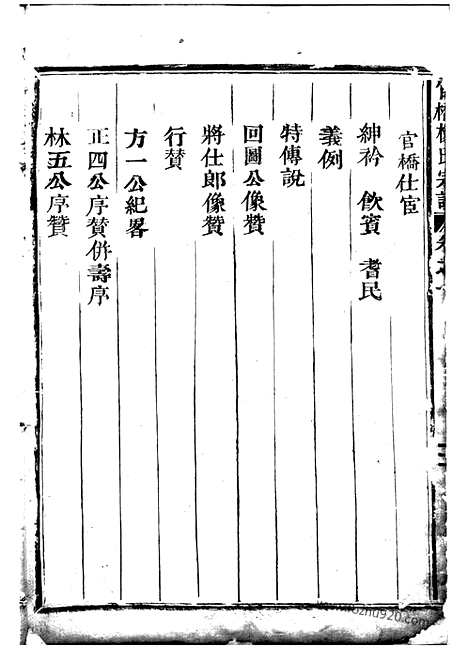 官橋仕宦
紳衿 飲賓 耆民
義例
特傳說
回圖公像贊
將仕郎像贊
行贊
方一公紀畧
正四公序贊併壽序
林五公序贊